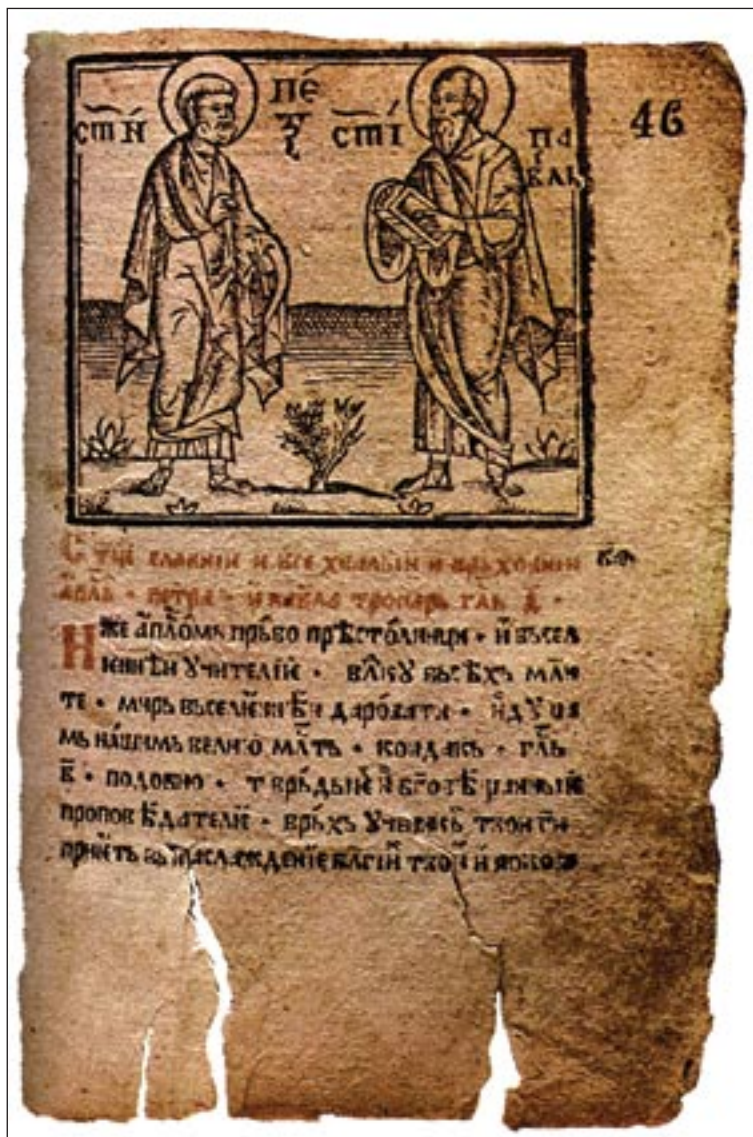 стĥ И ПЕ
стĥ І ПА
46
ВЛЬ
С тіи славнїи и все хвалнїи и врьховнїи
а҆пл҃ь · петра · и павла тропарь гл҃ь д҃ ·
Иже а҆пл҃омь прьво прѣстолници · и҆ вьсел
ѥннѣи ꙋчителїе · влⷣкꙋ вьсѣхь мл҃и
те · мирь вьселѥннѣи даровати · и҆ дꙋша
мь нашимь велию мл҃ть · кондакь · гл҃ь
в҃ · подобно · тврьдыи҆ и҆ бг҃о
проповѣдателїе · врьхь ꙋченикь твои ги
прїеть вь наслаждение бл҃гїи҆ твои҆